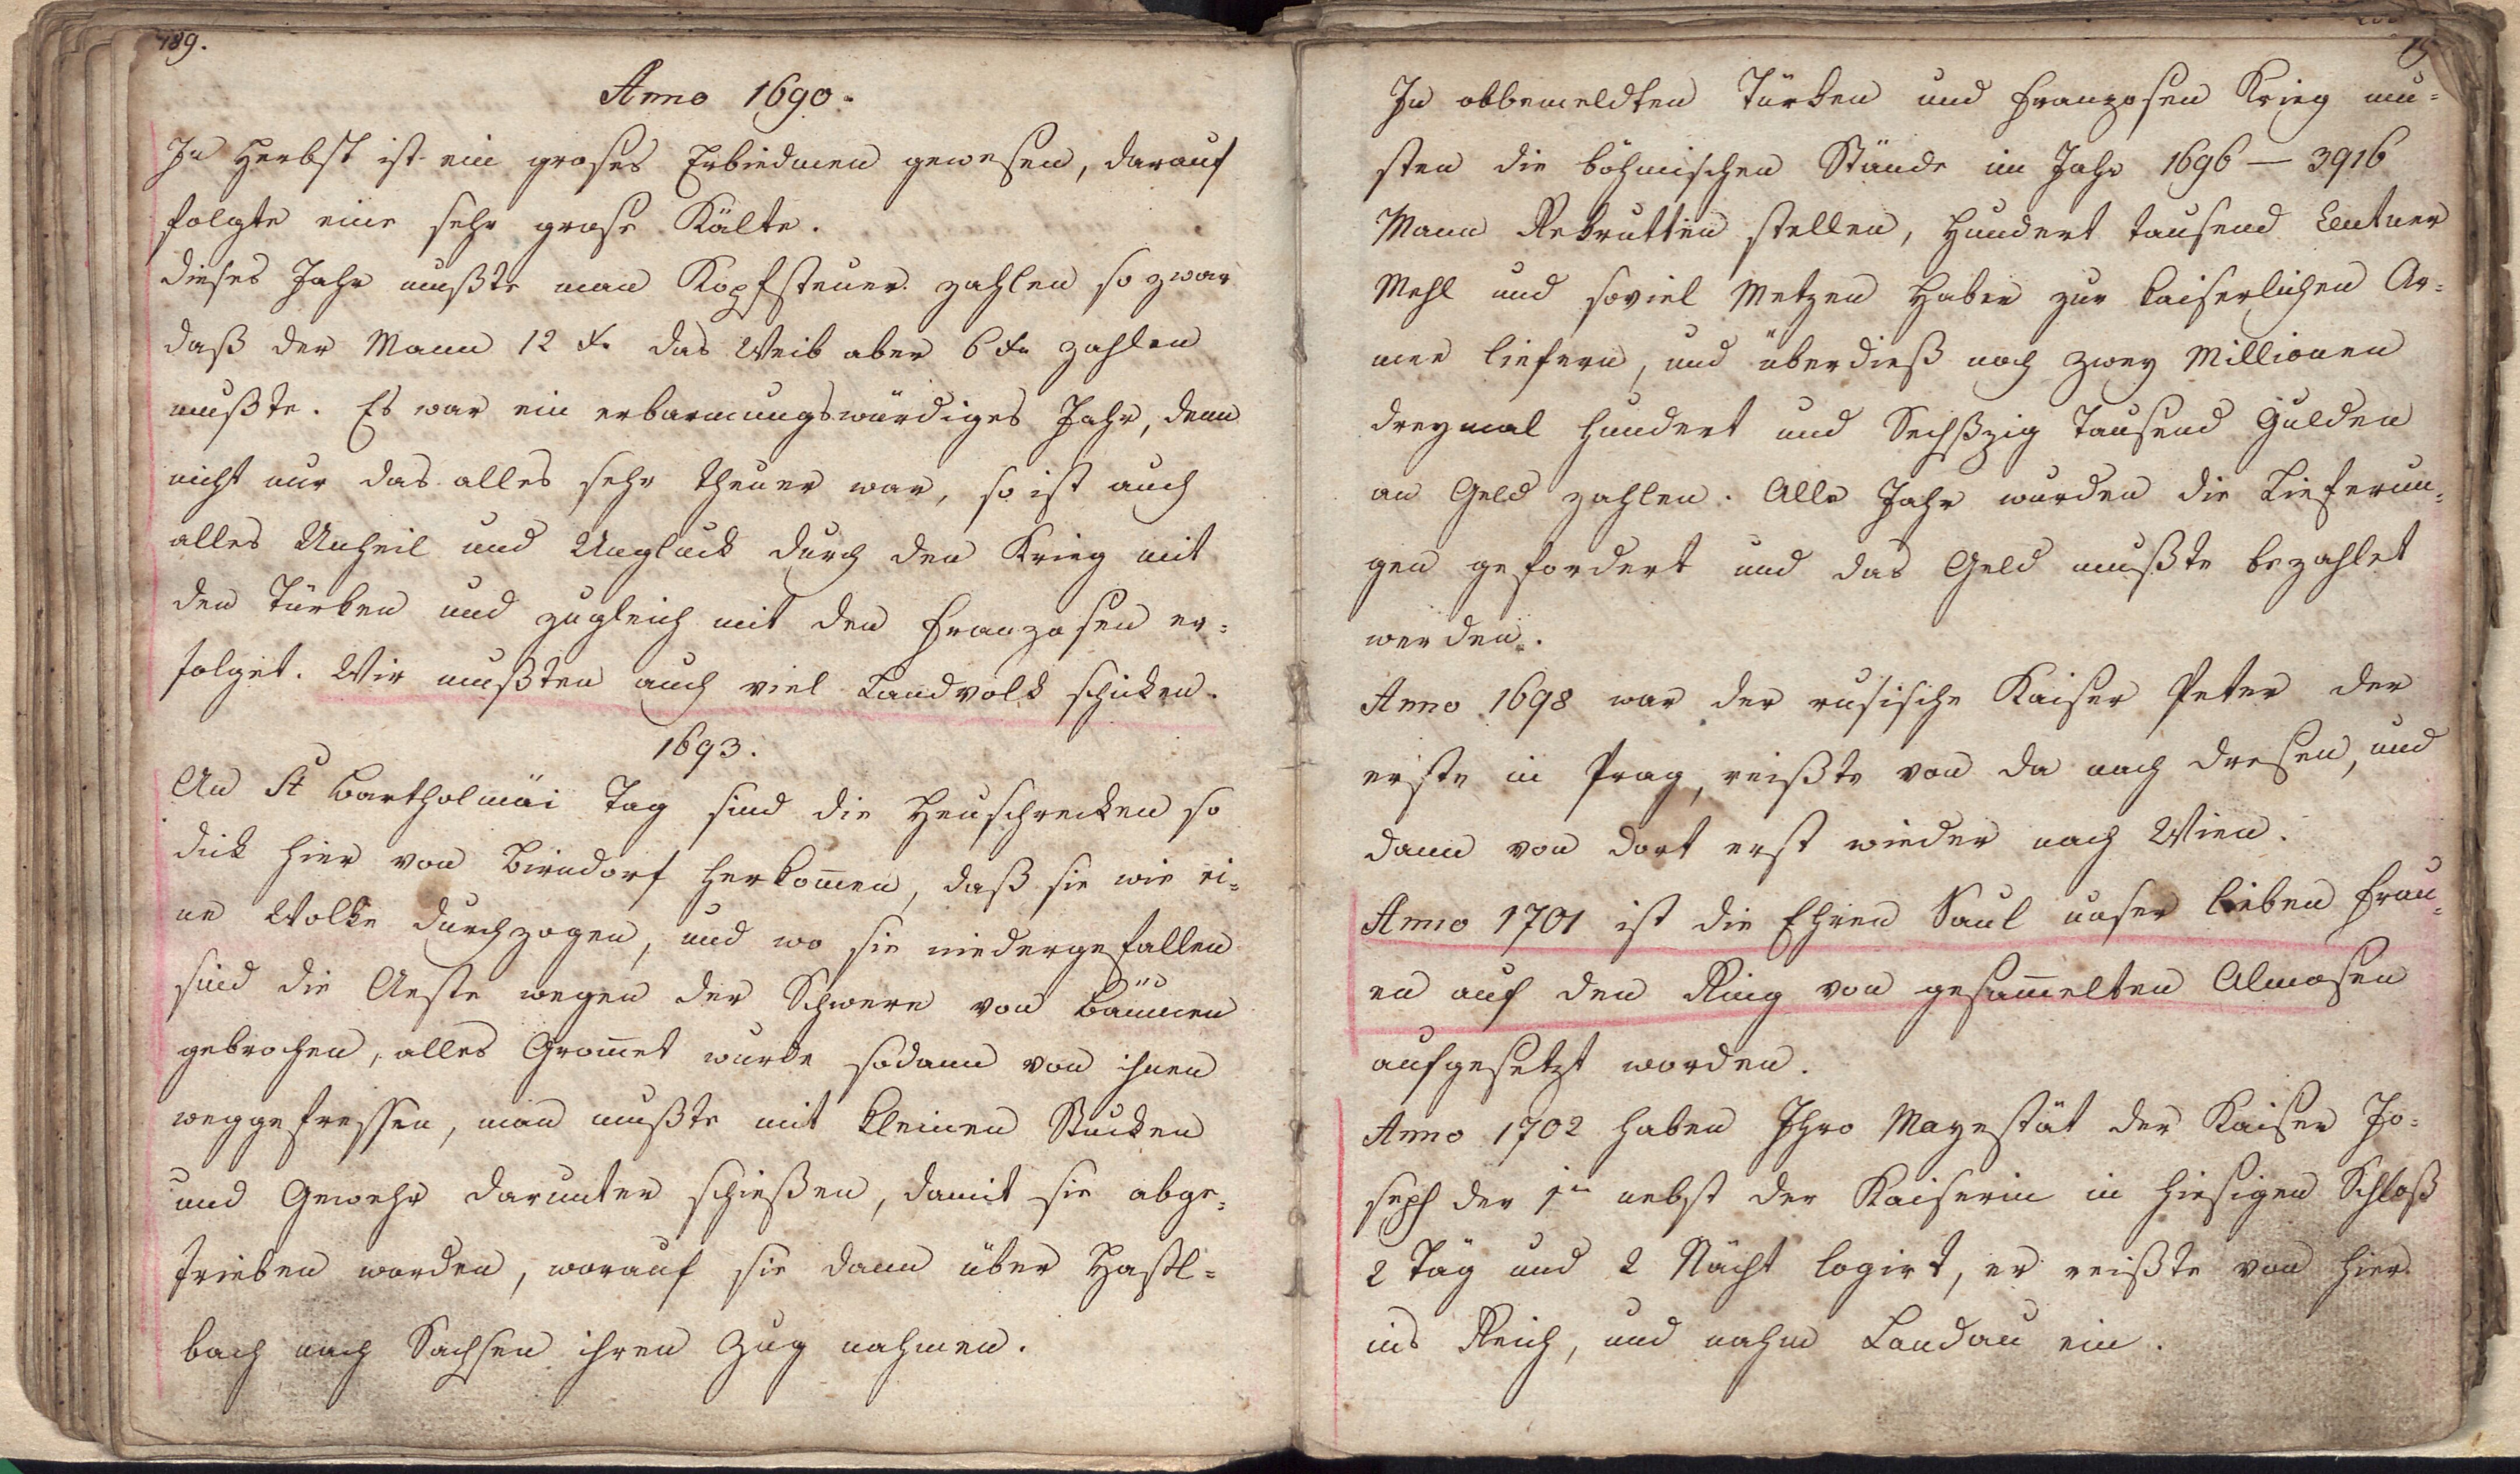 189.
Anno 1690.
In Herbst ist ein groses Erbiedmen gewesen, darauf
folgte eine sehr grose Kälte.
dieses Jahr mußte man Kopfsteuer zahlen so zwar
daß der Mann 12 x. das Weib aber 6 x. zahlen
mußte. Es war ein erbarmungswürdiges Jahr, denn
nicht nur das alles sehr theuer war, so ist auch
alles Unheil und Unglück durch den Krieg mit
den Türken und zugleich mit den Franzosen er=
folget. Wir mußten auch viel Landvolk schicken.
1693.
An St Bartholmäi Tag sind die Heuschrecken so
dick hier von Birndorf herkom̄en, daß sie wie ei=
ne Wolke durchzogen, und wo sie niedergefallen
sind die Aeste wegen der Schwere von Bäumen
gebrochen, alles Grom̄et wurde sodann von ihnen
weggefressen, man mußte mit kleinen Stucken
und Gewehr darunter schießen, damit sie abge=
trieben worden, worauf sie dann über Hasl=
bach nach Sachsen ihren Zug nahmen.
In obbemeldten Türken und Franzosen Krieg mu=
sten die böhmischen Stände im Jahr 1696 — 3916
Mann Rekrutten stellen, Hundert tausend Centner
Mehl und soviel Metzen Haber zur kaiserlichen Ar=
mee liefern, und überdieß noch zwey Millionen
dreymal hundert und Sechßzig Tausend Gulden
an Geld zahlen. Alle Jahr wurden die Lieferun=
gen gefordert und das Geld mußte bezahlet
werden.
Anno 1698 war der rusische Kaiser Peter der
erste in Prag, reißte von da nach Dresen, und
dann von dort erst wieder nach Wien.
Anno 1701 ist die Ehren Saul unser lieben Frau=
en auf den Ring von gesam̄elten Almosen
aufgesetzt worden.
Anno 1702 haben Ihro Mayestät der Kaiser Jo=
seph der 1te nebst der Kaiserin in hiesigen Schloß
2 Täg und 2 Nächt logirt, er reißte von hier
ins Reich, und nahm Landau ein.